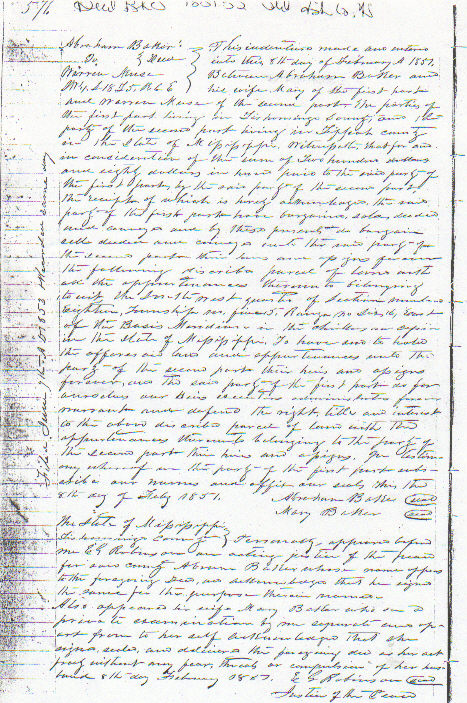 576
Deed Book
Abraham Baker
To } Deed
Warren Muse
This indenture made and entered
into this 8th day of February A 1851.
Between Abraham Baker and
his wife Mary of the first part
and Warren Muse of the second part. The parties of
the first part living in Tishomingo County and the
party of the second part living in Tippah county
in the State of Mississippi. Witnesseth that for and
in consideration of the sum of Two hundred dollars
and eighty dollars in hand paid to the said party of
the first part by the said party of the second part
the receipt of which is hereby acknowledged the said
party of the first part have bargained, sold, deeded
and conveyed and by these presents do bargain
sell deed and convey unto the said party of
the second part their heirs and assigns forever
the following described parcel of land with
all the appurtenances thereunto belonging
to wit the South West quarter of Section number
Eighteen, Township no. five 5. Range no six 6, East
of the Basis Meridian in the Chickasaw
in the State of Mississippi. To have and to hold
the aforesaid land and appurtenances unto the
party of the second part their heirs and assigns
forever, and the said party of the first part do for
ourselves our Heirs
warrant and defend the right title and interest
to the above described parcel of land with the
appurtenances thereunto belonging to the party of
the second part their heirs and assigns, In testimony
any whereof we the party of the first part subscribe
our names and affix our seals this the
8th day of Feby 1851. Abraham Baker (seal)
Mary Baker (seal)
The State of Mississippi
Tishomingo County } Personally appeared before
me E G Robinson an acting justice of the peace
for said county Abram Baker whose name appears
to the foregoing Deed, and acknowledges that he signed
the same for the purpose therein named.
Also appeared his wife Mary Baker who on a
private examination by me separate and apart
from her self acknowledged that she
signed, sealed, and delivered the foregoing deed as her act
freely without any fear, threats or compulsion of her husband
8th day February 1851. E G Robinson (seal)
Justice of the Peace